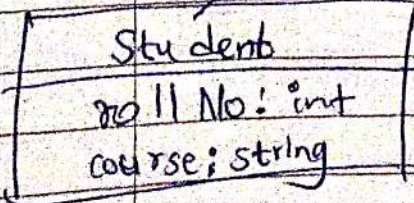 Student
roll No: int
course: string